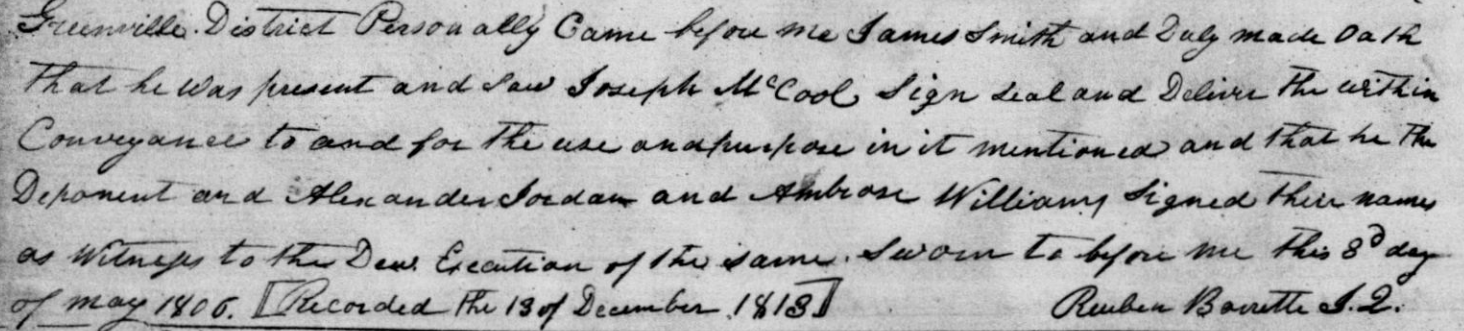 Greenville District Personally Came before me James Smith and Duly made Oath
That he Was present and Saw Joseph McCool Sign Seal and Deliver the within
Conveyance to and for the use and purpose in it mentioned and that he the
Deponent and Alexander Jordan and Ambrose Williams Signed their names
as Witness to the Dew Excution of the Same. Sworn to before me this 8d day
of may 1806. [Recorded the 13 of December 1813] Reuben Barrette J.Q.